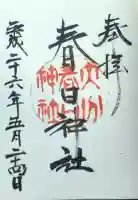 奉拝
春日神社
平成二十六年五月二十四日
春日
神社